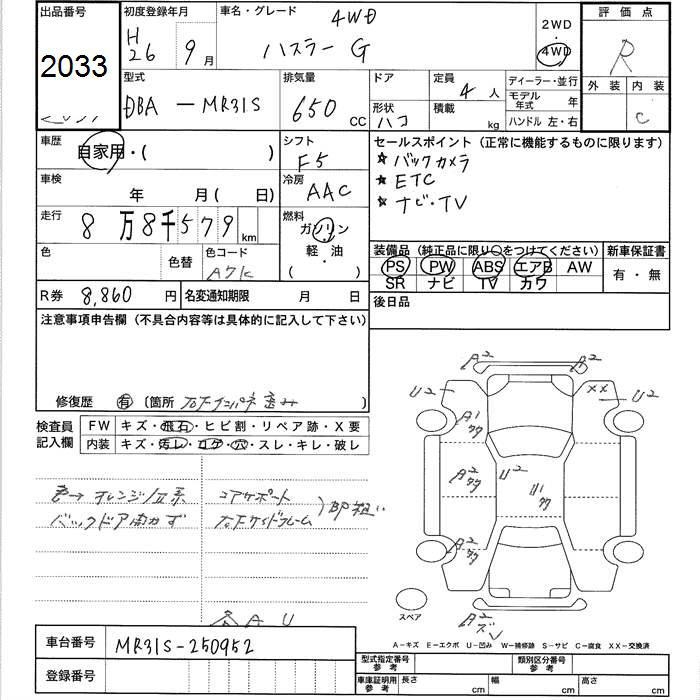 出品番号
2033
初度登録年月
H26 9月
車名・グレード
4WD
ハスラー G
2WD
4WD
評価点
R
外装 内装
C
型式
DBA - MR31S
排気量
650 CC
ドア
形状
ハコ
定員
4 人
積載
kg
ディーラー・並行
モデル年式 年
ハンドル 左・右
車歴
自家用・( )
シフト
F5
セールスポイント (正常に機能するものに限ります)
★ バックカメラ
★ ETC
★ ナビ・TV
車検
年 月( 日)
冷房
AAC
走行
8万8千579km
燃料
ガソリン
軽・油
( ・ )
色
色替
色コード
A7K
装備品 (純正品に限り○をつけてください)
PS PW ABS エアB AW
SR ナビ TV カワ
新車保証書
有・無
R券 8,860円
名変通知期限 月 日
後日品
注意事項申告欄 (不具合内容等は具体的に記入して下さい)
修復歴 有 〔箇所 右Fインパネ歪み 〕
検査員記入欄
FW キズ・飛石・ヒビ割・リペア跡・X要
内装 キズ・汚レ・コゲ・穴・スレ・キレ・破レ
色→オレンジ/Ⅱ系
バックドア開かず
コアサポート
右Fサイドフレーム
)BP粗い
A U
A2 A2
U2 XX U2
A1
A2
U2
U1
A2
スペア
A2
A-キズ E-エクボ U-凹み W-補修跡 S-サビ C-腐食 XX-交換済
車台番号 MR31S-250952
登録番号
型式指定番号参考
類別区分番号参考
車庫証明用参考 長さ cm 幅 cm 高さ cm